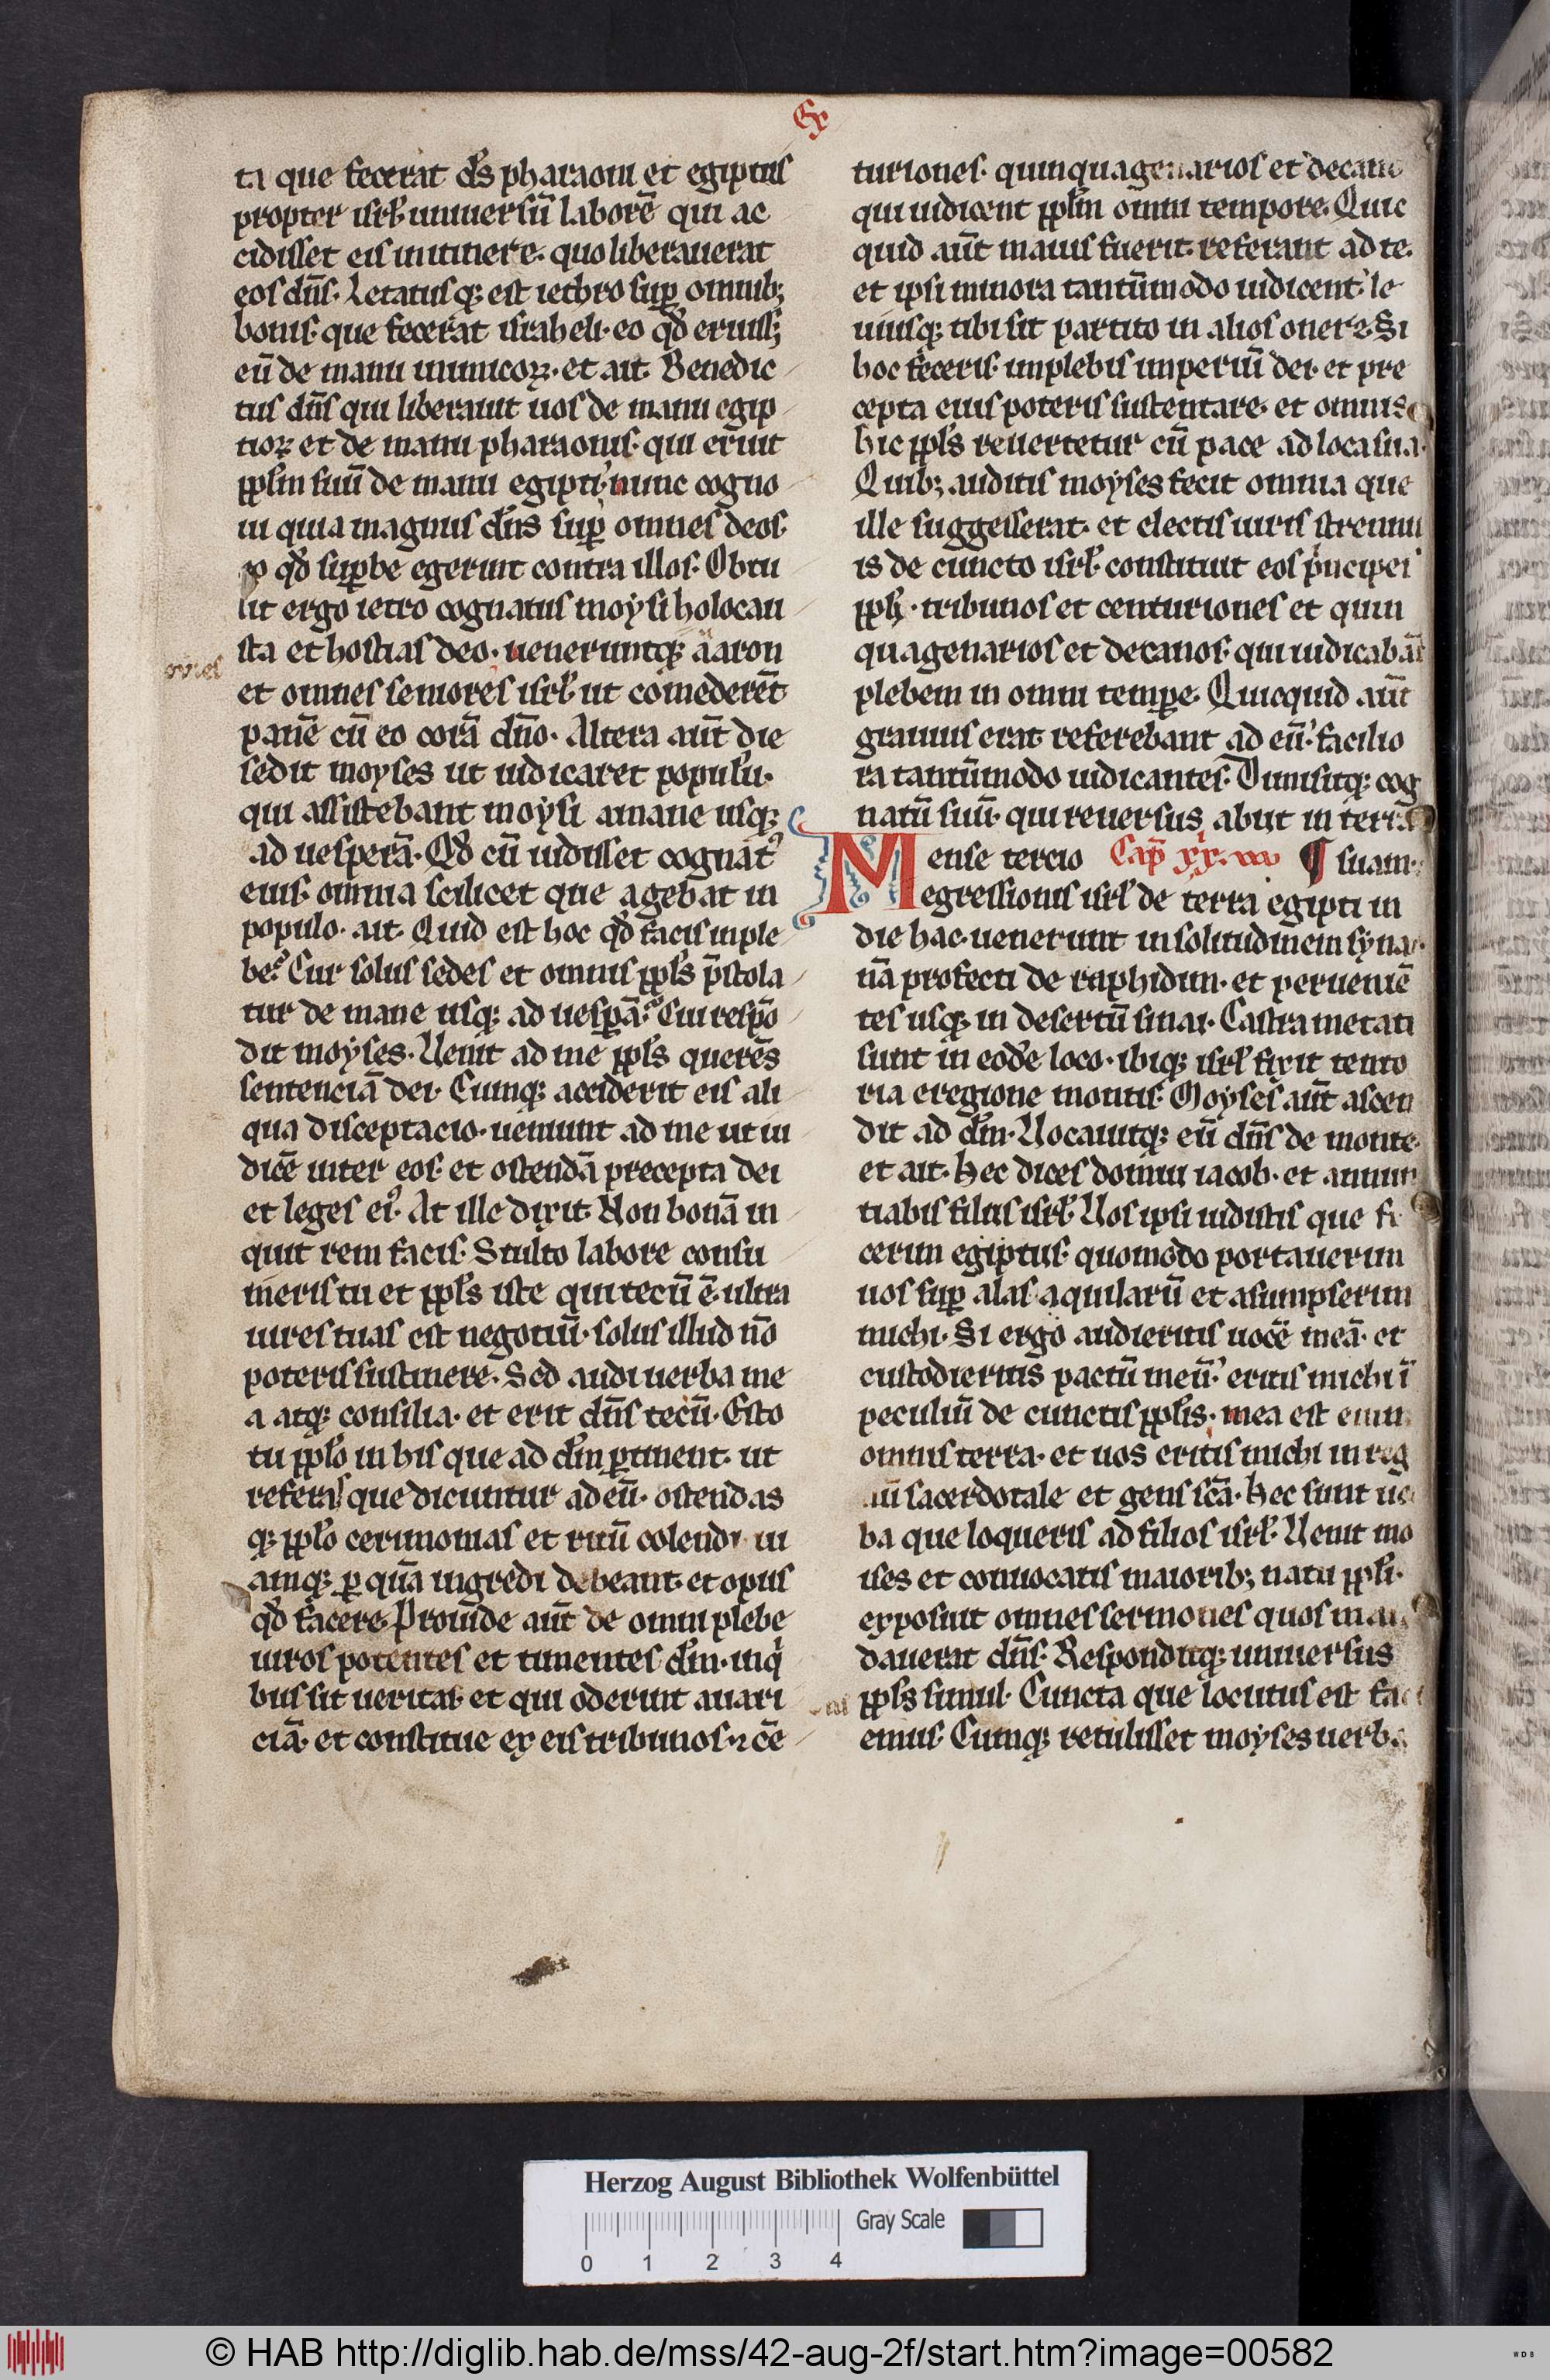 Ex
ta que fecerat dn̄s pharaoni et egiptiis
propter isrl̄ uniuersū laborē qui ac
cidisset eis in itinere. quo liberauerat
eos dn̄s. Letatusq; est iethro suꝑ omnib;
bonis. que fecerat israheli. eo qd̄ eruiss;
eū de manu inimicoꝝ. et ait. Benedic
tus dn̄s qui liberauit uos de manu egip
tioꝝ et de manu pharaonis. qui eruit
ppl̄m suū de manu egipti. nunc cogno
ui quia magnus dn̄s suꝑ omnes deos.
eo qd̄ suꝑbe egerunt contra illos. Obtu
lit ergo ietro cognatus moysi holocau
sta et hostias deo. ueneruntq; aaron
omnes
et omnes seniores isrl̄ ut comederēt
panē cū eo corā dn̄o. Altera aūt die
sedit moyses ut iudicaret populū.
qui assistebant moysi amane usq;
ad uesperā. Qd̄ cū uidisset cognatꝰ
eius. omnia scilicet que agebat in
populo. ait. Quid est hoc qd̄ facis inple
be? Cur solus sedes et omnis ppl̄s p̄stola
tur de mane usq; ad uesꝑā? Cui respō
dit moyses. Uenit ad me ppl̄s querēs
sentenciā dei. Cumq; acciderit eis ali
qua disceptacio. ueniunt ad me ut iu
dicē inter eos. et ostendā precepta dei
et leges eiꝰ. At ille dixit. Non bonā in
quit rem facis. Stulto labore consu
meris tu et ppl̄s iste qui tecū ē. ultra
uires tuas est negotiū. solus illud nō
poteris sustinere. Sed audi uerba me
a atq; consilia. et erit dn̄s tecū. Esto
tu ppl̄o in his que ad dm̄ ꝑtinent. ut
referas que dicuntur ad eū. ostendas
q; ppl̄o cerimonias et ritū colendi ui
amq; ꝑ quā ingredi debeant. et opus
qd̄ facere. Prouide aūt de omni plebe
uiros potentes et timentes dm̄. inq
bus sit ueritas. et qui oderunt auari
ciā. et constitue ex eis tribunos. ⁊ cē
turiones. quinquagenarios et decanos
qui iudicent ppl̄m omni tempore. Quic
quid aūt maius fuerit. referant ad te.
et ipsi minora tantūmodo iudicent. le
uiusq; tibi sit partito in alios onere. Si
hoc feceris. implebis imperiū dei. et pre
cepta eius poteris sustentare. et omnis
hic ppl̄s reuertetur cū pace ad loca sua.
Quib; auditis moyses fecit omnia que
ille suggesserat. et electis uiris strenuu
is de cuncto isrl̄. constituit eos pͥncipes
ppl̄i. tribunos et centuriones et quin
quagenarios et decanos. qui iudicabāt
plebem in omni temꝑe. Quicquid aūt
grauius erat. referebant ad eū. facilio
ra tantūmodo iudicantes. Dimisitq; cog
natū suū. qui reuersus abiit in terrā
Mense tercio Cap̄ xx. ¶ suam.
egressionis isrl̄ de terra egipti in
die hac. uenerunt in solitudinem syna.
nā profecti de raphidim. et peruenīē
tes usq; in desertū sinai. Castra metati
sunt in eodē loco. ibiq; isrl̄ fixit tento
ria eregione montis. Moyses aūt ascen
dit ad dm̄. Uocauitq; eū dn̄s de monte.
et ait. Hec dices domui iacob. et annun
tiabis filiis isrl̄. Uos ipsi uidistis que fe
cerim egiptiis. quomodo portauerim
uos suꝑ alas aquilarū et asumpserim
michi. Si ergo audieritis uocē meā. et
custodieritis pactū meū. eritis michi ī
peculiū de cunctis ppl̄is. mea est enim
omnis terra. et uos eritis michi in reg
nū sacerdotale et gens scā. Hec sunt uer
ba que loqueris ad filios isrl̄. Uenit mo
ises et conuocatis maiorib; natu ppl̄i.
exposuit omnes sermones quos man
dauerat dn̄s. Responditq; uniuersus
ppl̄s simul. Cuncta que locutus est faci
emus. Cumq; retulisset moyses uerba
Herzog August Bibliothek Wolfenbüttel
Gray Scale
0 1 2 3 4
© HAB http://diglib.hab.de/mss/42-aug-2f/start.htm?image=00582
WDB